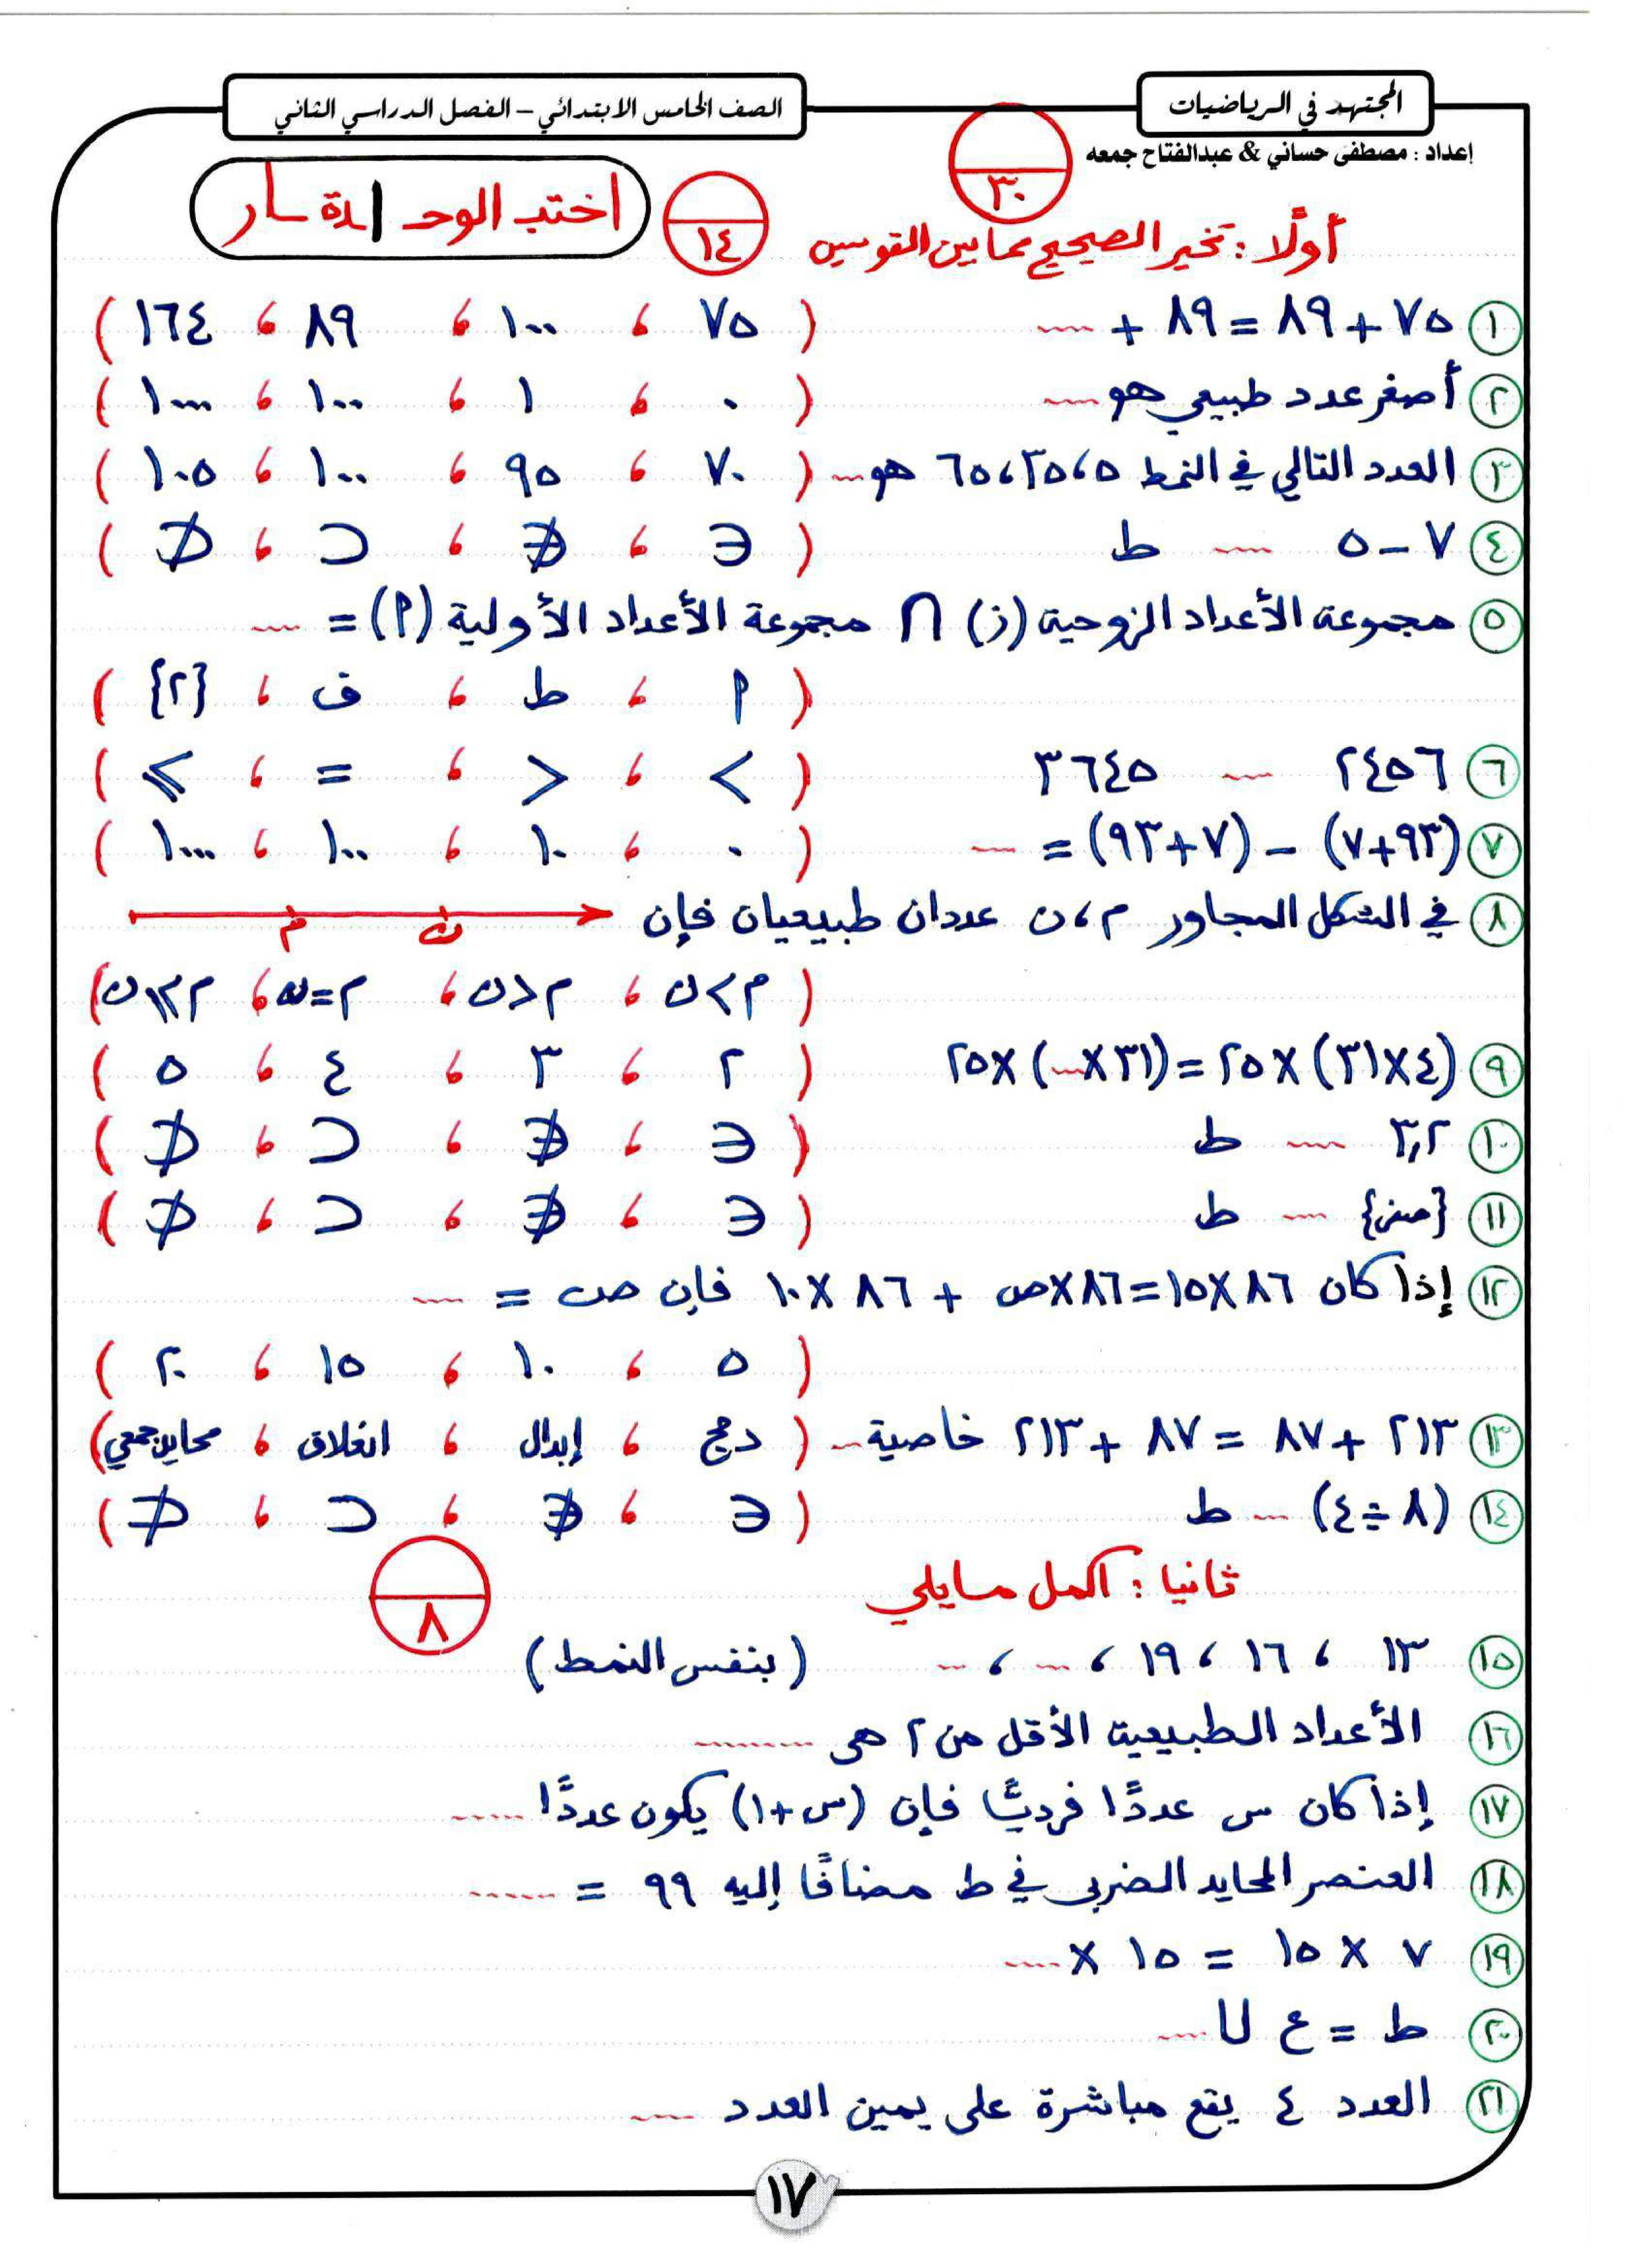 المجتهد في الرياضيات
الصف الخامس الابتدائي – الفصل الدراسي الثاني
إعداد : مصطفى حساني & عبدالفتاح جمعه
٣٠
١٤
أولًا : تخير الصحيح مما بين القوسين
١ ٧٥ + ٨٩ = ٨٩ + ..... ( ٧٥ ، ١٠٠ ، ٨٩ ، ١٦٤ )
٢ أصغر عدد طبيعي هو ..... ( ٠ ، ١ ، ١٠٠ ، ١٠٠٠ )
٣ العدد التالي في النمط ٥ ، ٣٥ ، ٦٥ هو ..... ( ٧٠ ، ٩٥ ، ١٠٠ ، ١٠٥ )
٤ ٧ – ٥ ..... ط ( ∈ ، ∉ ، ⊂ ، ⊄ )
٥ مجموعة الأعداد الزوجية (ز) ∩ مجموعة الأعداد الأولية (أ) = .....
( أ ، ط ، ف ، {٢} )
٦ ٢٤٥٦ ..... ٣٦٤٥ ( > ، < ، = ، ≥ )
٧ (٩٣+٧) – (٧+٩٣) = ..... ( ٠ ، ١٠ ، ١٠٠ ، ١٠٠٠ )
٨ في الشكل المجاور م ، ن عددان طبيعيان فإن
م ن
( م > ن ، م < ن ، م = ن ، م ≥ ن )
٩ (٤×٣١) × ٢٥ = (٣١× .....) × ٢٥ ( ٢ ، ٣ ، ٤ ، ٥ )
١٠ ٣,٢ ..... ط ( ∈ ، ∉ ، ⊂ ، ⊄ )
١١ {صفر} ..... ط ( ∈ ، ∉ ، ⊂ ، ⊄ )
١٢ إذا كان ٨٦×١٥ = ٨٦×ص + ٨٦ × ١٠ فإن ص = .....
( ٥ ، ١٠ ، ١٥ ، ٢٠ )
١٣ ٢١٣ + ٨٧ = ٨٧ + ٢١٣ خاصية ..... ( دمج ، إبدال ، انغلاق ، محايد جمعي )
١٤ (٨ ÷ ٤) ..... ط ( ∈ ، ∉ ، ⊂ ، ⊄ )
ثانيا : اكمل مايلي
٨
١٥ ١٣ ، ١٦ ، ١٩ ، ..... ، ..... ( بنفس النمط )
١٦ الأعداد الطبيعية الأقل من ٢ هى .........
١٧ إذا كان س عددًا فرديًا فإن (س+١) يكون عددًا ......
١٨ العنصر المحايد الضربى في ط مضافًا إليه ٩٩ = .......
١٩ ٧ × ١٥ = ١٥ × .....
٢٠ ط = ع ∪ .....
٢١ العدد ٤ يقع مباشرة على يمين العدد .....
١٧